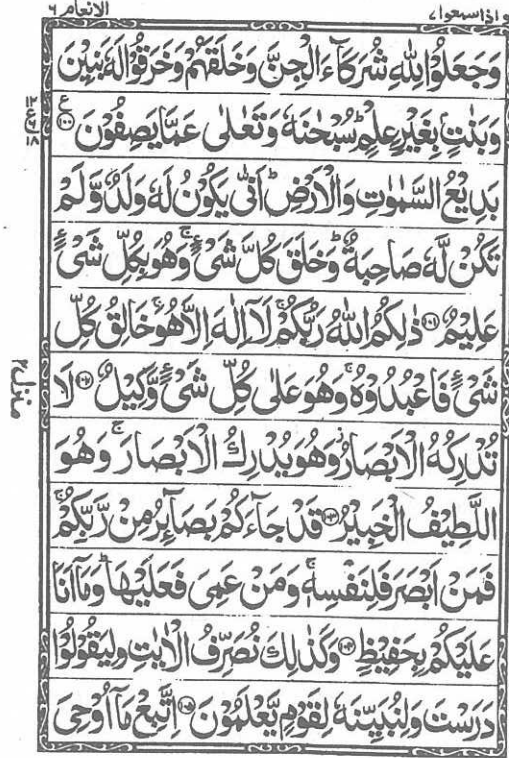 واذاسمعوا٧ الانعام٦
وَجَعَلُوْا لِلّٰهِ شُرَكَآءَ الْجِنَّ وَخَلَقَهُمْ وَخَرَقُوْا لَهٗ بَنِيْنَ
وَبَنٰتٍۭ بِغَيْرِ عِلْمٍ ؕ سُبْحٰنَهٗ وَتَعٰلٰى عَمَّا يَصِفُوْنَ ۧ﴿۱۰۰﴾
بَدِيْعُ السَّمٰوٰتِ وَالْاَرْضِ ؕ اَنّٰى يَكُوْنُ لَهٗ وَلَدٌ وَّلَمْ
تَكُنْ لَّهٗ صَاحِبَةٌ ؕ وَخَلَقَ كُلَّ شَىْءٍ ۚ وَهُوَ بِكُلِّ شَىْءٍ
عَلِيْمٌ ﴿۱۰۱﴾ ذٰلِكُمُ اللّٰهُ رَبُّكُمْ ۚ لَاۤ اِلٰهَ اِلَّا هُوَ ۚ خَالِقُ كُلِّ
شَىْءٍ فَاعْبُدُوْهُ ۚ وَهُوَ عَلٰى كُلِّ شَىْءٍ وَّكِيْلٌ ﴿۱۰۲﴾ لَا
تُدْرِكُهُ الْاَبْصَارُ ؗ وَهُوَ يُدْرِكُ الْاَبْصَارَ ۚ وَهُوَ
اللَّطِيْفُ الْخَبِيْرُ ﴿۱۰۳﴾ قَدْ جَآءَكُمْ بَصَآئِرُ مِنْ رَّبِّكُمْ ۚ
فَمَنْ اَبْصَرَ فَلِنَفْسِهٖ ۚ وَمَنْ عَمِىَ فَعَلَيْهَا ؕ وَمَاۤ اَنَا
عَلَيْكُمْ بِحَفِيْظٍ ﴿۱۰۴﴾ وَكَذٰلِكَ نُصَرِّفُ الْاٰيٰتِ وَلِيَقُوْلُوْا
دَرَسْتَ وَلِنُبَيِّنَهٗ لِقَوْمٍ يَّعْلَمُوْنَ ﴿۱۰۵﴾ اِتَّبِعْ مَاۤ اُوْحِىَ
منزل٢